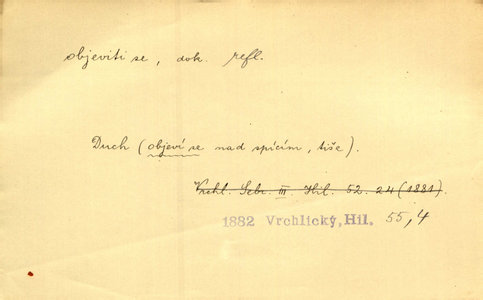 objeviti se, dok. refl.
Duch (objeví se nad spícím, tiše).
Vrchl. Sebr. III. Hil. 52. 24 (1881).
1882 Vrchlický, Hil. 55,4